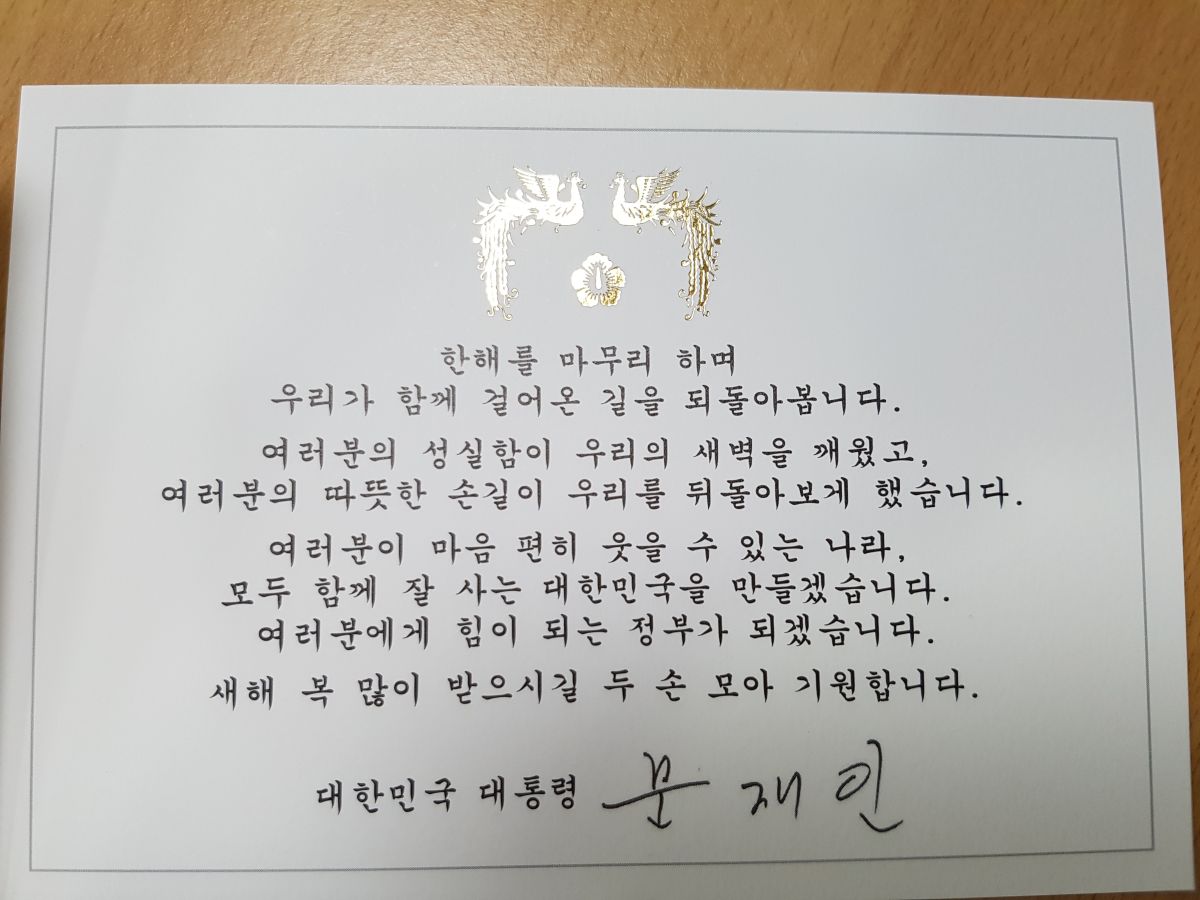 한해를 마무리 하며
우리가 함께 걸어온 길을 되돌아봅니다.
여러분의 성실함이 우리의 새벽을 깨웠고,
여러분의 따뜻한 손길이 우리를 뒤돌아보게 했습니다.
여러분이 마음 편히 웃을 수 있는 나라,
모두 함께 잘 사는 대한민국을 만들겠습니다.
여러분에게 힘이 되는 정부가 되겠습니다.
새해 복 많이 받으시길 두 손 모아 기원합니다.
대한민국 대통령 문재인